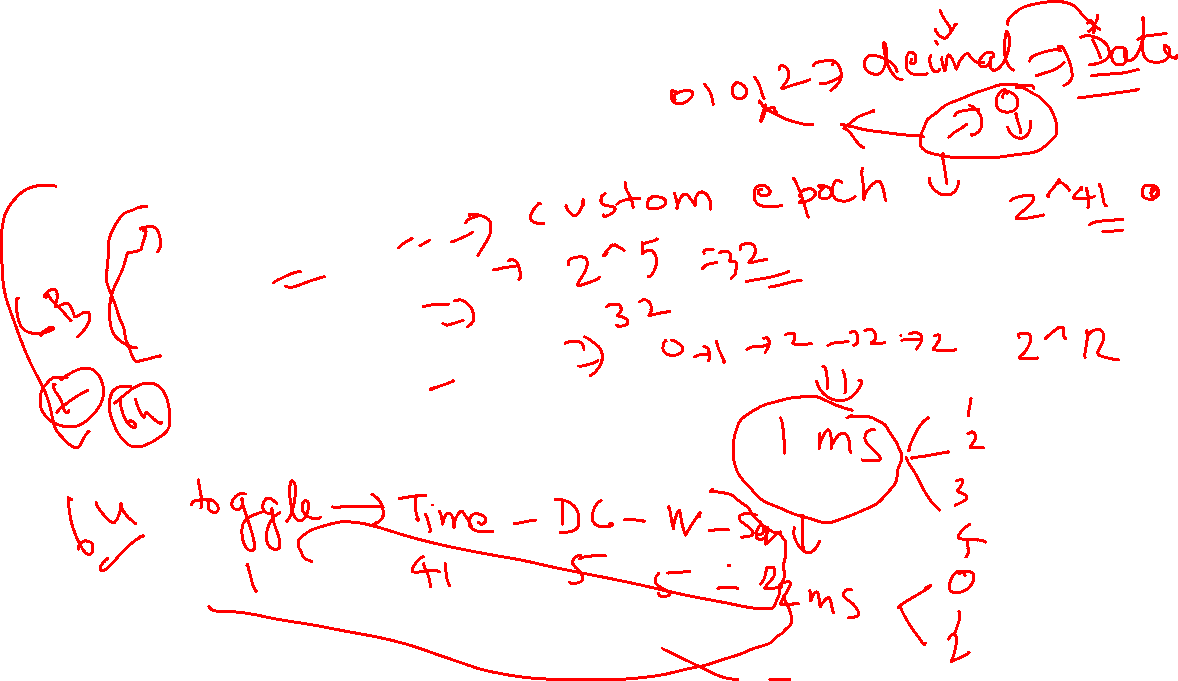 01012 → deimal → Date
→ 0
→ custom epoch 2^41
→ 2^5 = 32
→ 32
→ 0 → 1 → 2 → 2 → 2 2^12
1 ms 1
2
3
64 toggle → Time - DC - W - Seq
1 41 5 5
2ms 0
1
2